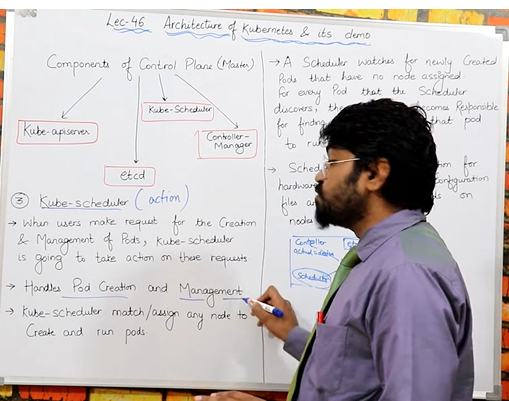 Lec-46 Architecture of Kubernetes & its demo
Components of Control Plane (Master)
Kube-apiserver
Kube-Scheduler
Controller-
Manager
etcd
③ Kube-scheduler (action)
→ When users make request for the Creation
& Management of Pods, Kube-scheduler
is going to take action on these requests
→ Handles Pod Creation and Management
→ Kube-scheduler match/assign any node to
Create and run pods.
→ A Scheduler watches for newly Created
Pods that have no node assigned.
For every Pod that the Scheduler
discovers, the Responsible
for finding that pod
to
→ for
hardware configuration
files a on
nodes
Controller
Scheduler